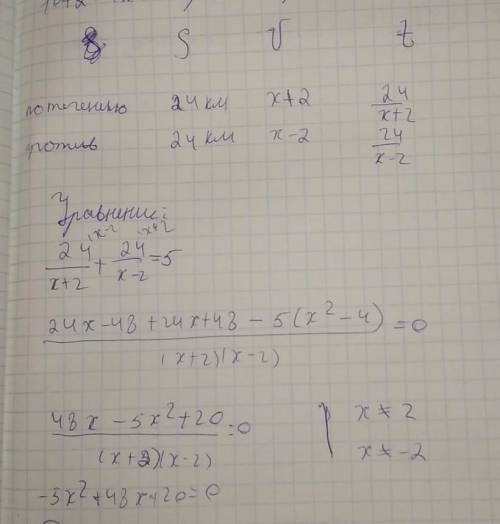 S V t
по течению 24 км x+2 24/(x+2)
против 24 км x-2 24/(x-2)
Уравнение:
24/(x+2) (x-2 + 24/(x-2) (x+2 = 5
(24x-48+24x+48-5(x²-4))/((x+2)(x-2)) = 0
(48x-5x²+20)/((x+2)(x-2)) = 0 | x ≠ 2
x ≠ -2
-5x²+48x+20=0